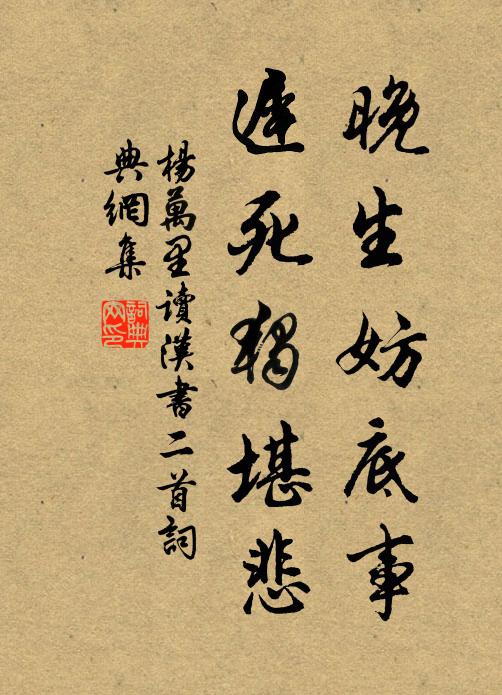 晚生妨底事
遲死獨堪悲
楊萬里讀漢書二首詞
典網集
詞典
網印